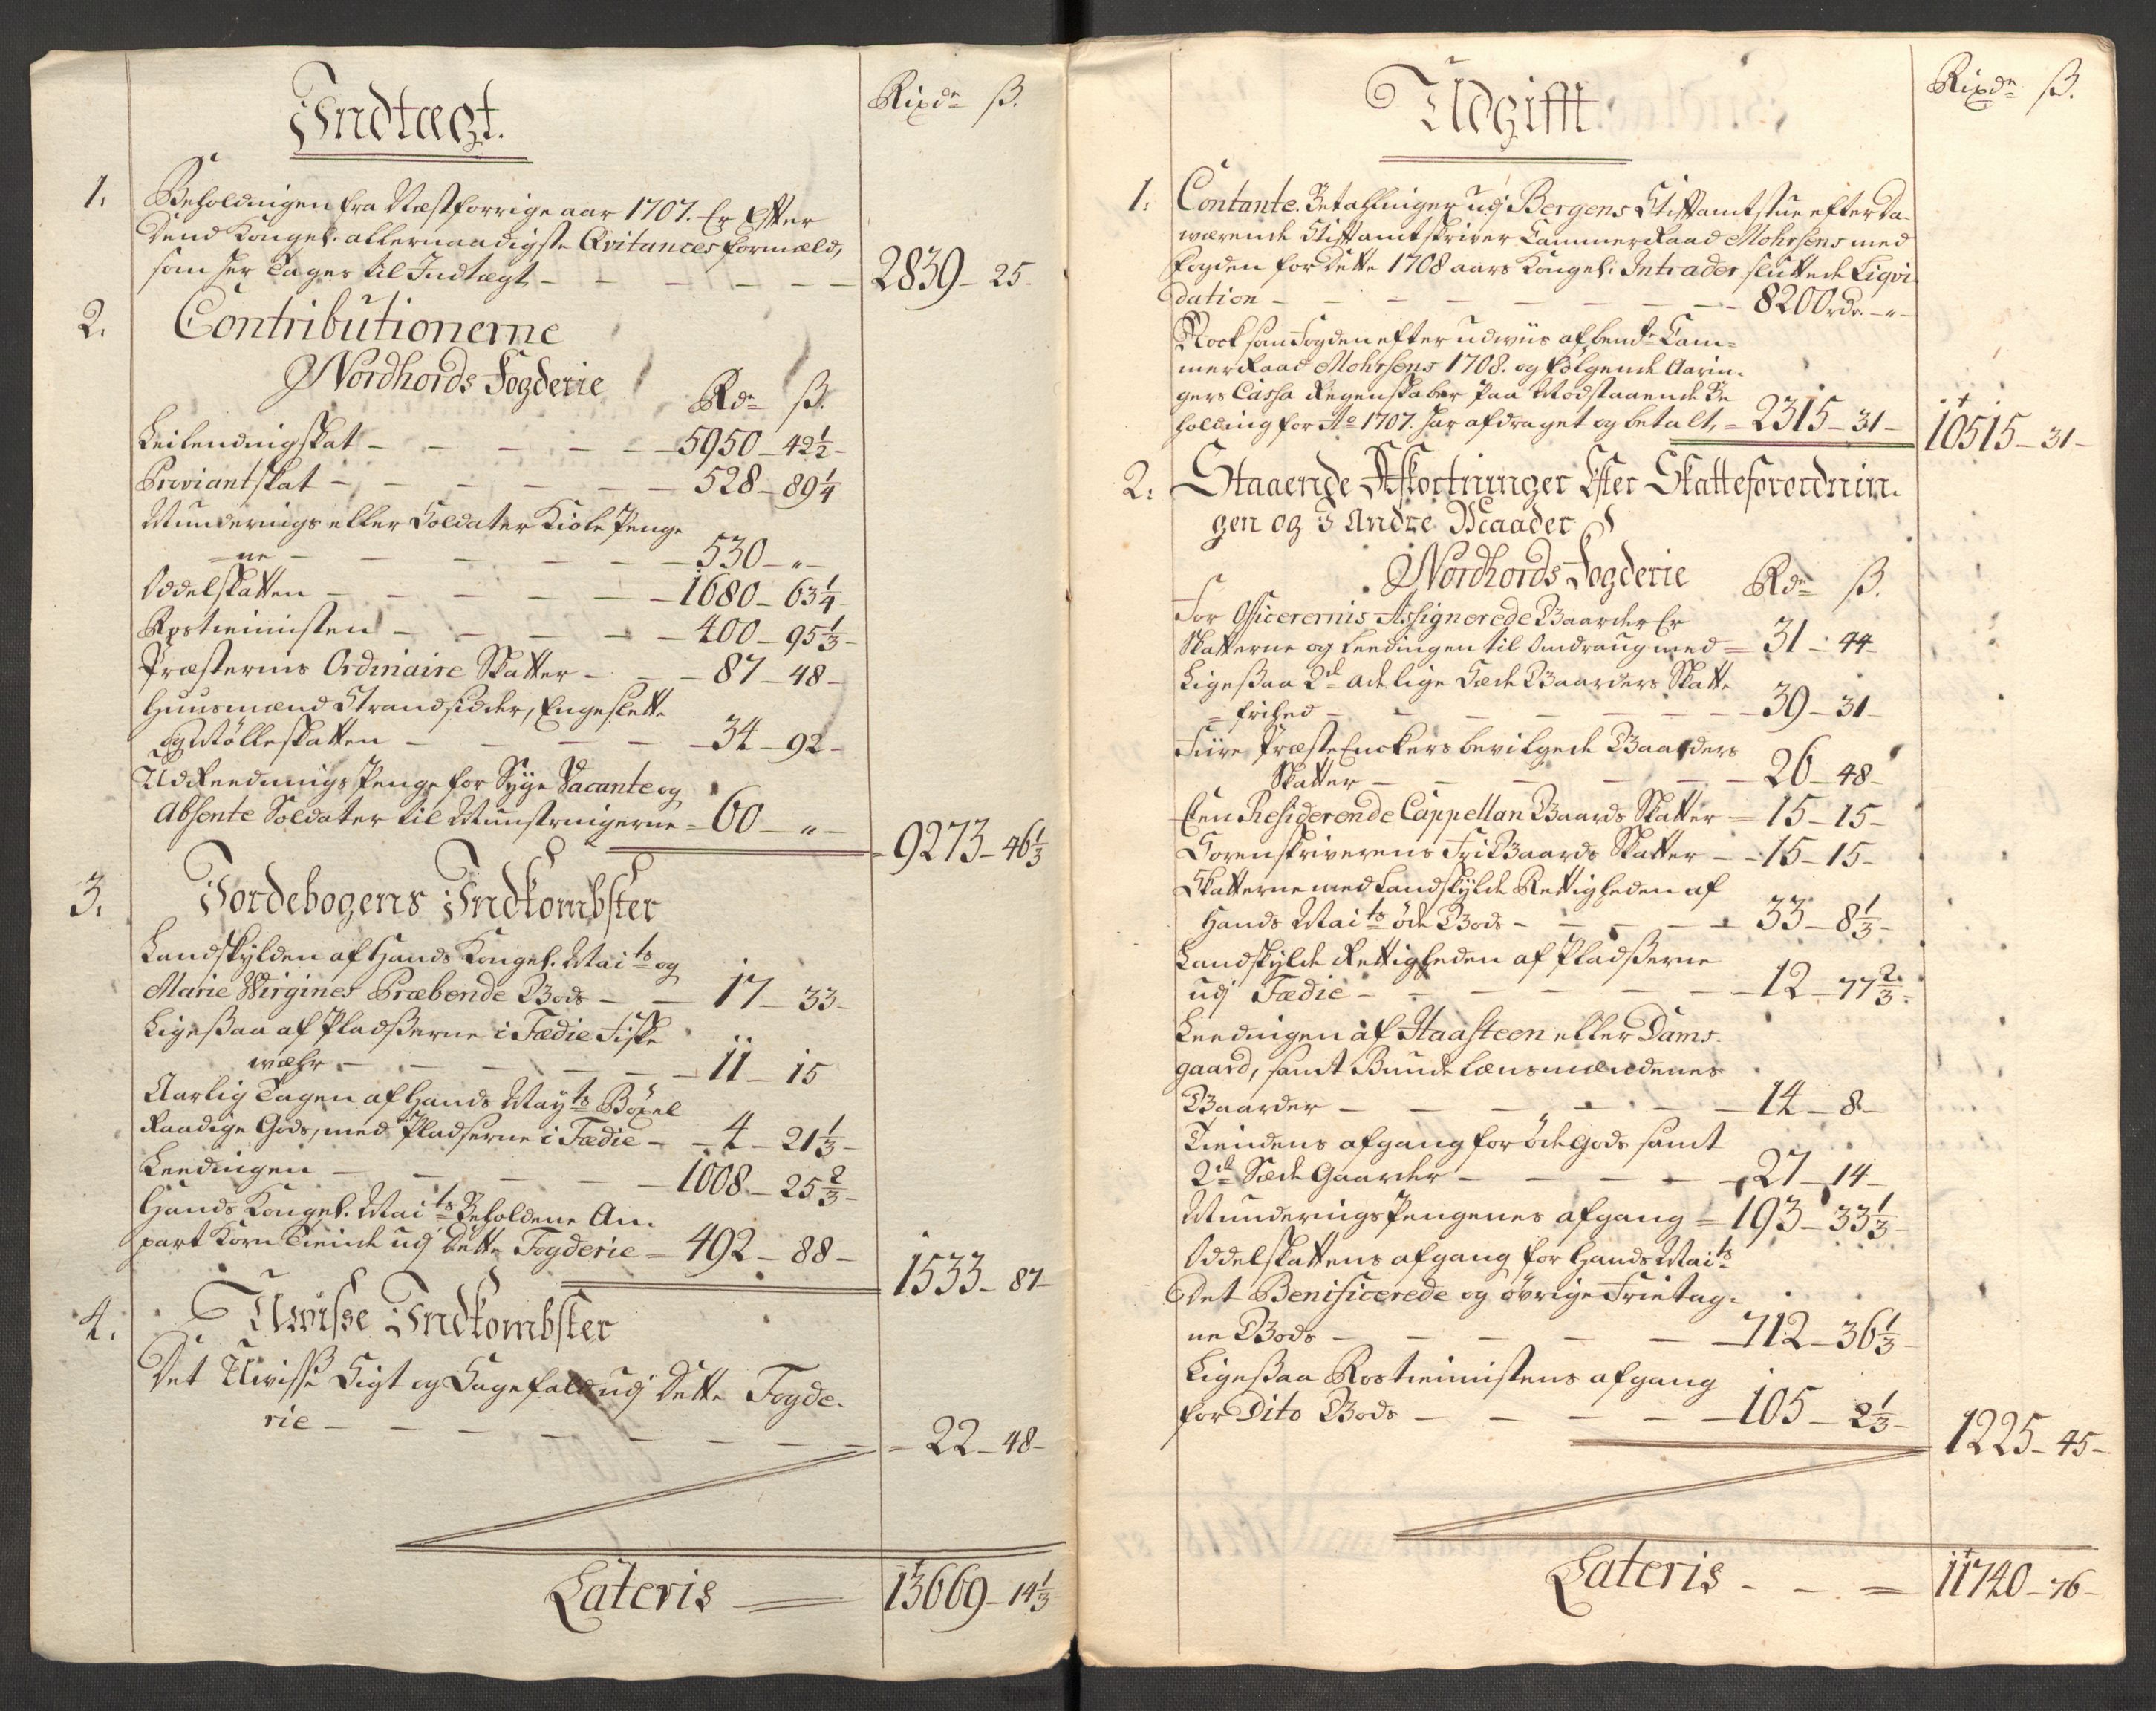 Indtægt.
Rixdr ß.
1. Beholdningen fra Næstforrige aar 1707. Er Efter
dend Kongel. allernaadigste Qvitances formeld,
som her Tages til Indtægt – – – – – – 2839 – 25 –
2. Contributionerne
Nordhords Fogderie
Rdr ß.
Leilendingskat – – – – – 5950 – 42½ –
Proviantskat – – – – – – 528 – 89¼
Munderings eller Soldater Kiole Penge
ne – – – – – – 530 – " –
Oddelskatten – – – – – – 1680 – 63¼
Rostienisten – – – – – 400 – 95⅓ –
Præsternis Ordinaire Skatter – – – 87 – 48 –
Huusmænd Strandsidder, Engeslette
og Mölleskatten – – – – – 34 – 92 –
UdReednings Penge for Syge Vacante og
Absente Soldater til Munstringerne = 60 – " –
9273 – 46⅓
3. Jordebogens Indkombster
Landskylden af Hands Kongel. Maits og
Marie Wirgines Præbende Gods – – 17 – 33 –
Ligeßaa af Pladßerne i Fædie Fiske
wæhr – – – – – – 11 – 15
Aarlig Tagen af Hands Mayts Böxel
Raadige Gods, med Pladserne i Fædie – – 4 – 21⅓ –
Leedingen – – – – – 1008 – 25⅔ –
Hands Kongel. Maits Beholdene An-
part Korn Tiende udj dette Fogderie = 492 – 88 –
1533 – 87 –
4. Uwisse Indkombster
Det Uwisse Sigt og Sagefald udj dette Fogde-
rie – – – – – – – – 22 – 48 –
Lateris = 13669 – 14⅓
Udgifft
Rixdr ß.
1. Contante Betahlinger udj Bergens Stiftamtstue efter da-
wærende Stiftamtskriver Cammer Raad Mohrsens med
fogden for dette 1708 aars Kongel: Intrader sluttede Liqvi-
dation – – – – – – – – 8200 rdr. – " –
Nock som Fogden efter udwiis af bemte Cam-
mer Raad Mohrsens 1708. og fölgende Aarin-
gers Cassa Regenskaber paa Modstaaende Be
holding for Ao 1707. har afdraget og betalt, = 2315 – 31 –
10515 – 31 –
2. Staaende Afkortninger Efter Skatteforordnin-
gen og I Andre Maader
Nordhords Fogderie
Rdr ß.
For Officerernis Assignerede Gaarder Er
Skatterne og Leedingen til Omdraug med = 31 – 44
Ligeßaa 2de adelige Sæde Gaarders Skatte
= frihed – – – – – – – 39 – 31 –
Fiire Præste Enckers bevilgede Gaarders
Skatter – – – – – – 26 – 48 –
Een Residerende Cappellan Gaards Skatter = 15 – 15 –
Sorenskriverens Frie Gaards Skatter – – 15 – 15 –
Skatterne med Landskylds Rettigheden af
Hands Maits öde Gods – – – – – 33 – 8⅓ –
Landskylds Rettigheden af Pladßerne
udj Fædie – – – – – – – 12 – 77⅔ –
Leedingen af Haasteen eller Dams-
gaard, samt Bunde Lænsmændenes
Gaarder – – – – – – 14 – 8 –
Tiendens afgang for öde Gods samt
2de Sæde Gaarder – – – – – 27 – 14 –
Munderings Pengenes afgang = 193 – 33⅓
Oddelskattens afgang for Hands Maits
Det Benificerede og övrige Frietag-
ne Gods – – – – – – 712 – 36⅓ –
Ligeßaa Rostienistens afgang
for Dito Gods – – – – – 105 – 2⅓ –
1225 – 45 –
Lateris – – = 11740 – 76 –